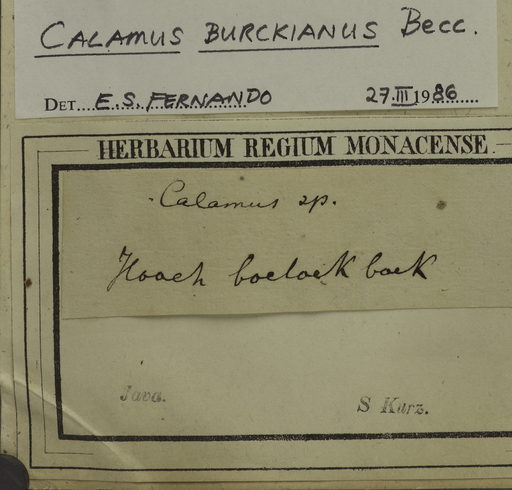 CALAMUS BURCKIANUS Becc.
DET. E. S. FERNANDO 27.III.1986
HERBARIUM REGIUM MONACENSE.
Calamus sp.
Hoach boeloek boek
Java.
S Kurz.